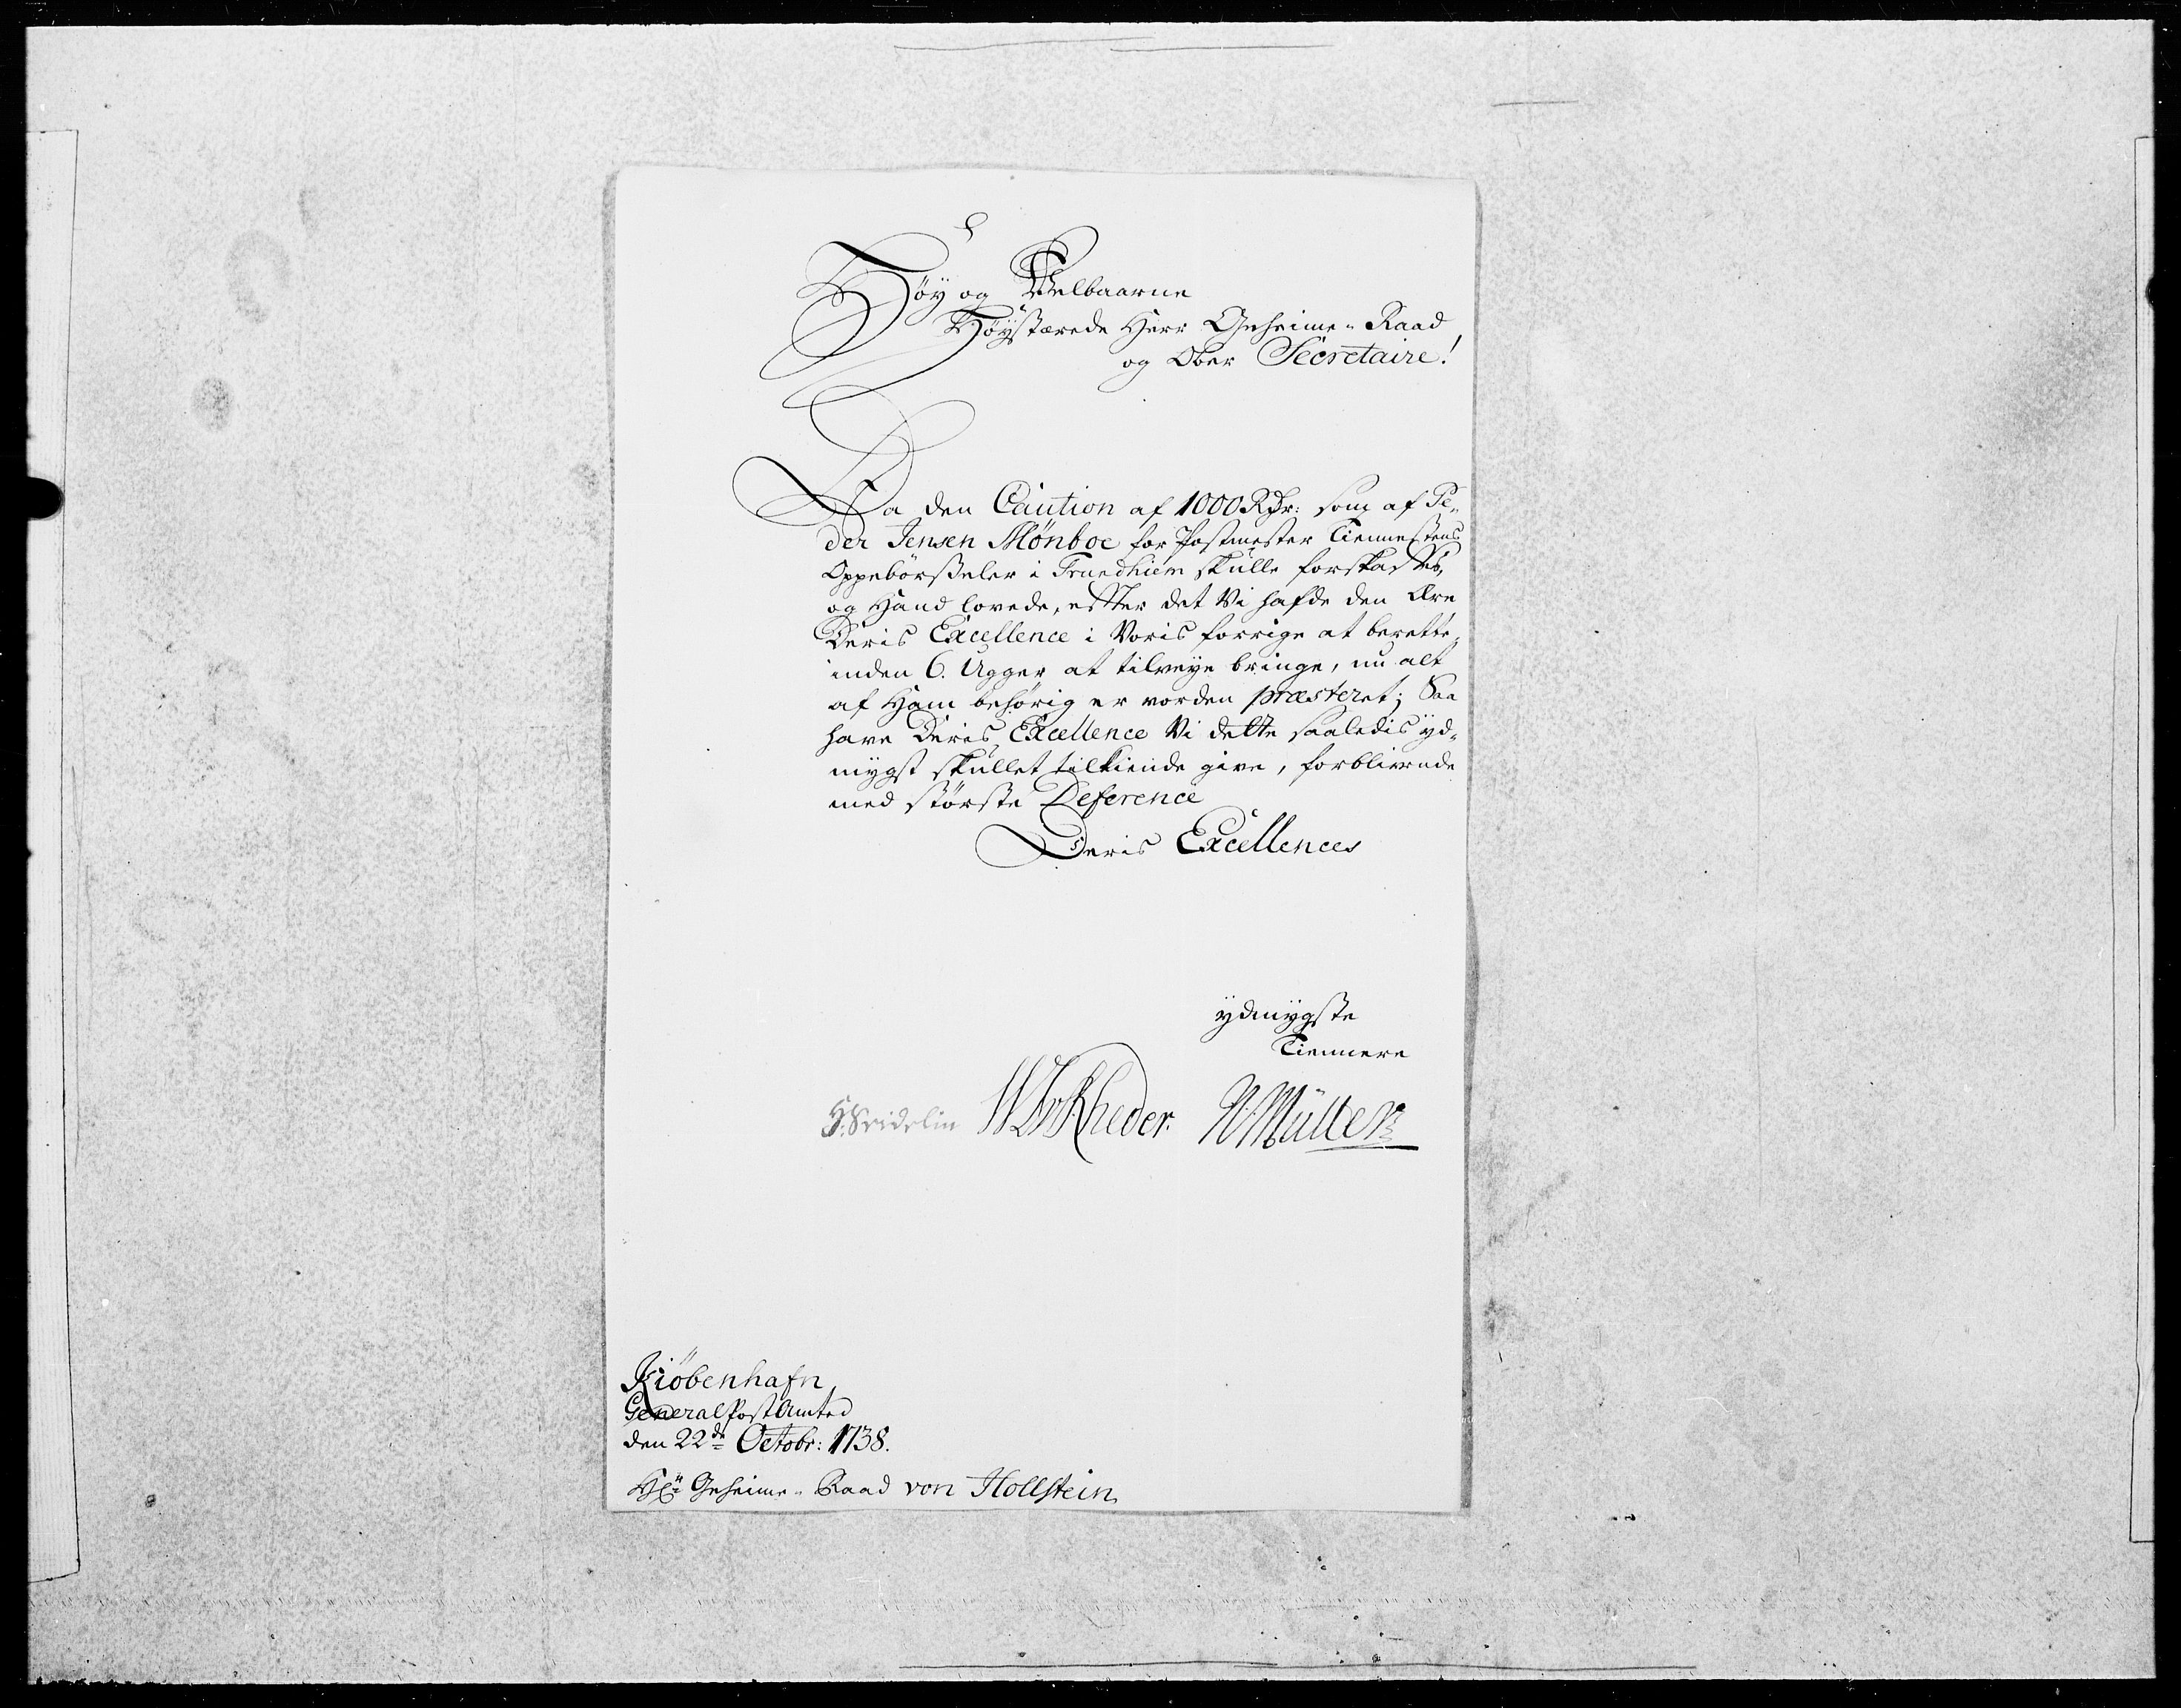 Høy og Velbaarne
Høystærede Herr Geheime-Raad
og Ober Secretaire!
Da den Caution af 1000 Rdr: som af Pe-
der Jensen Mönboe for Postmester Tiennestens
Oppebørsseler i Trundhiem skulle forskaffes,
og Hand lovede, efter det Vi hafde den Ære
Deris Excellence i Voris forrige at berette,
inden 6. Ugger at tilveye bringe, nu alt
af Ham behørig er vorden præsteret; Saa
have Deris Excellence Vi dette saaledis yd-
mygst skullet tilkiende give, forblivende
med største Deference
Deris Excellences
ydmygste
Tiennere
H: Seidelin W Rheder. N: Müller
Kiöbenhafn
General Post Amted
den 22de Octobr: 1738.
Hr. Geheime-Raad von Hollstein